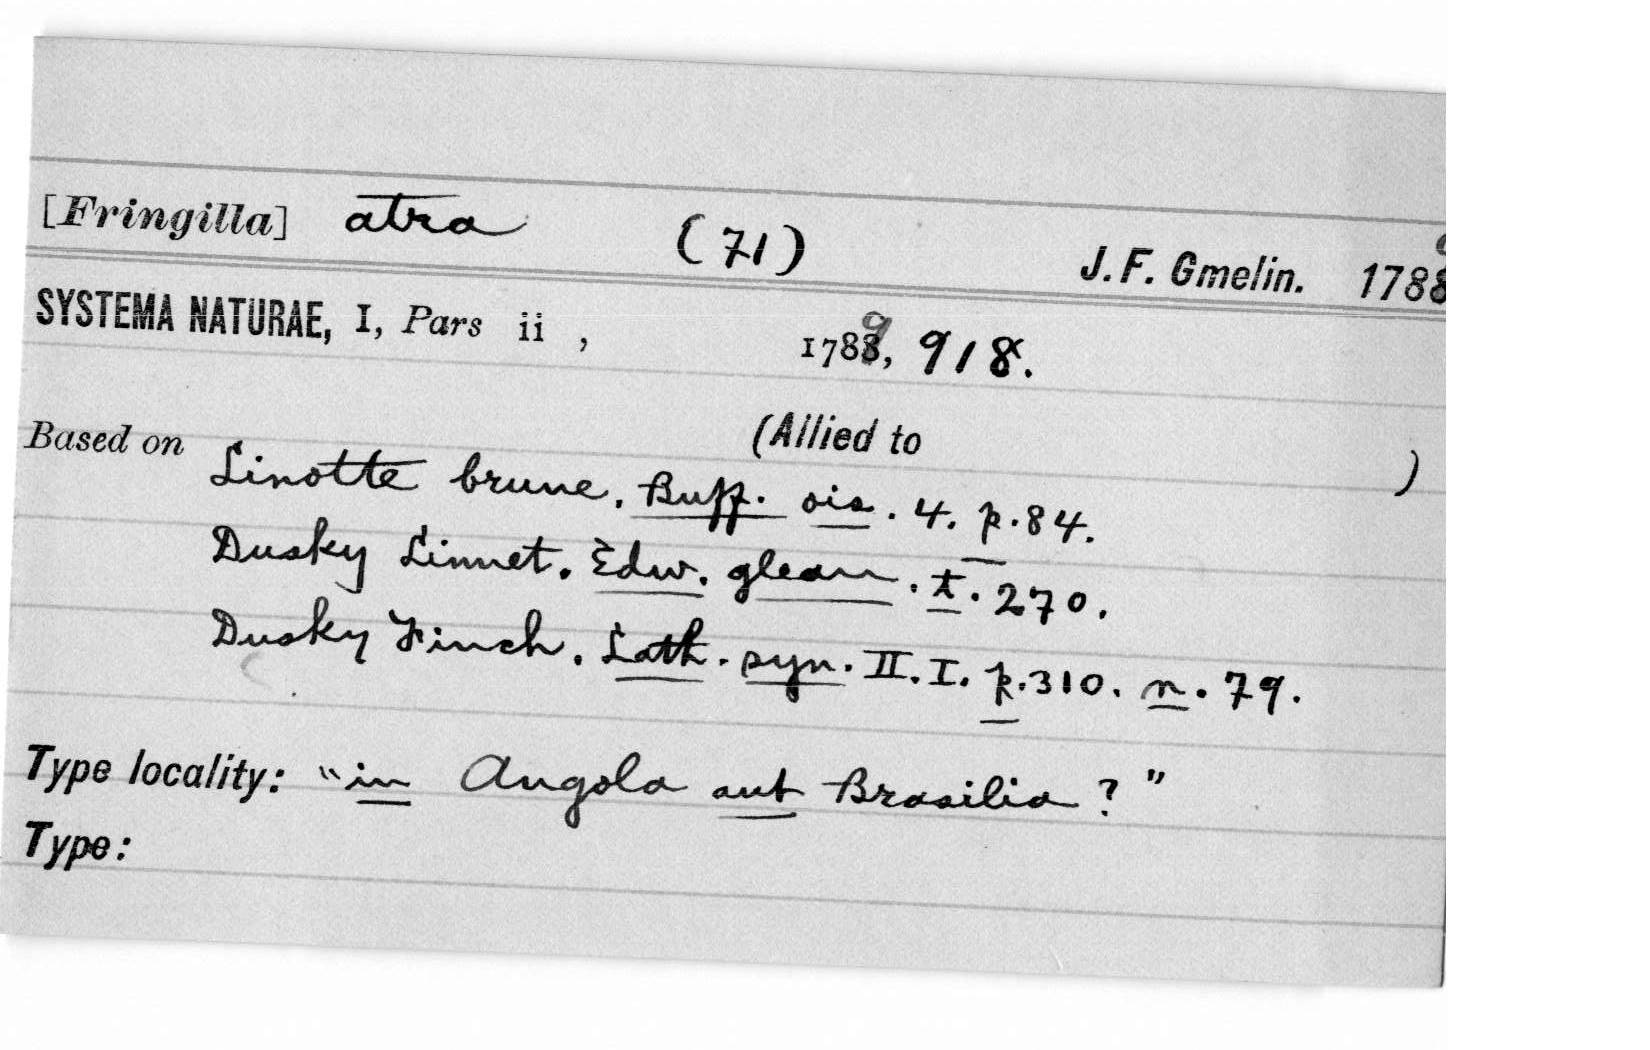 [Fringilla] atra (71) J. F. Gmelin. 1789
SYSTEMA NATURAE, I, Pars ii , 1789, 918.
Based on (Allied to )
Linotte brune. Buff. ois. 4. p. 84.
Dusky Linnet. Edw. glean. t. 270.
Dusky Finch. Lath. syn. II. I. p. 310. n. 79.
Type locality: "in Angola aut Brasilia ? "
Type: